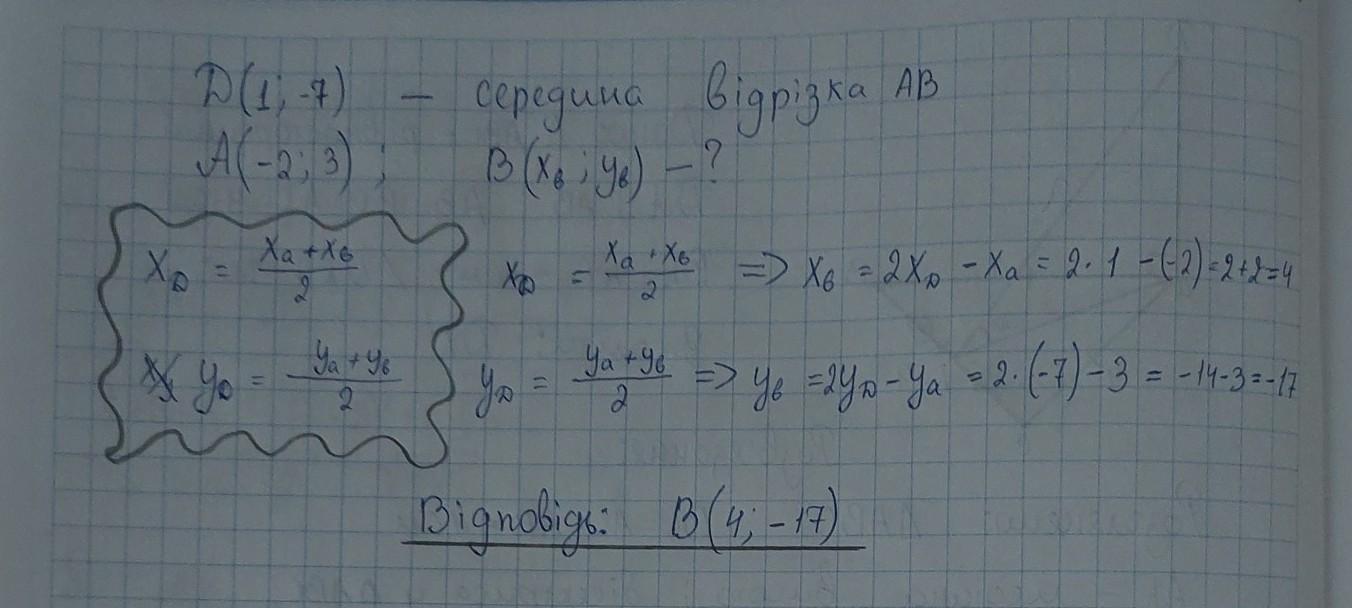 D(1; -7) – середина відрізка AB
A(-2; 3); B(xв; yв) – ?
xD = (xa + xв)/2
yD = (ya + yв)/2
xD = (xa + xв)/2 => xв = 2xD - xa = 2·1 - (-2) = 2+2=4
yD = (ya + yв)/2 => yв = 2yD - ya = 2·(-7) - 3 = -14-3=-17
Відповідь: B(4; -17)